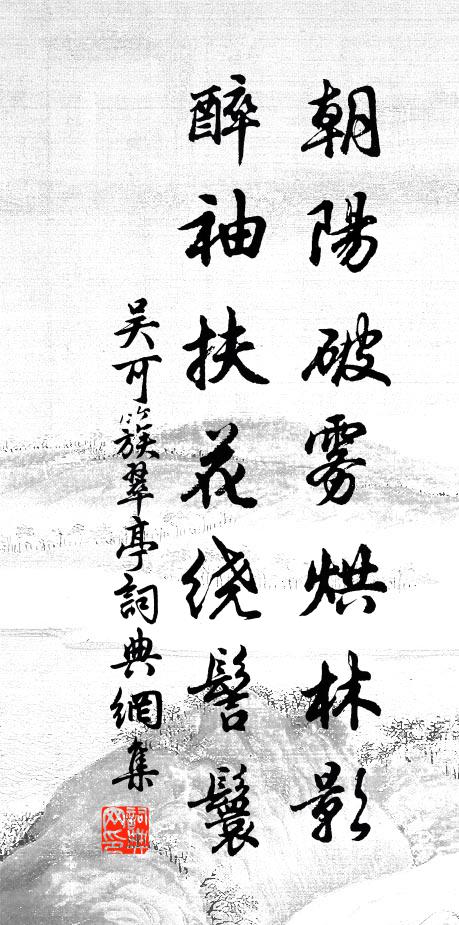 朝陽破雾烘林影
醉袖扶花绕髻鬟
吴可簇翠亭詞典網集